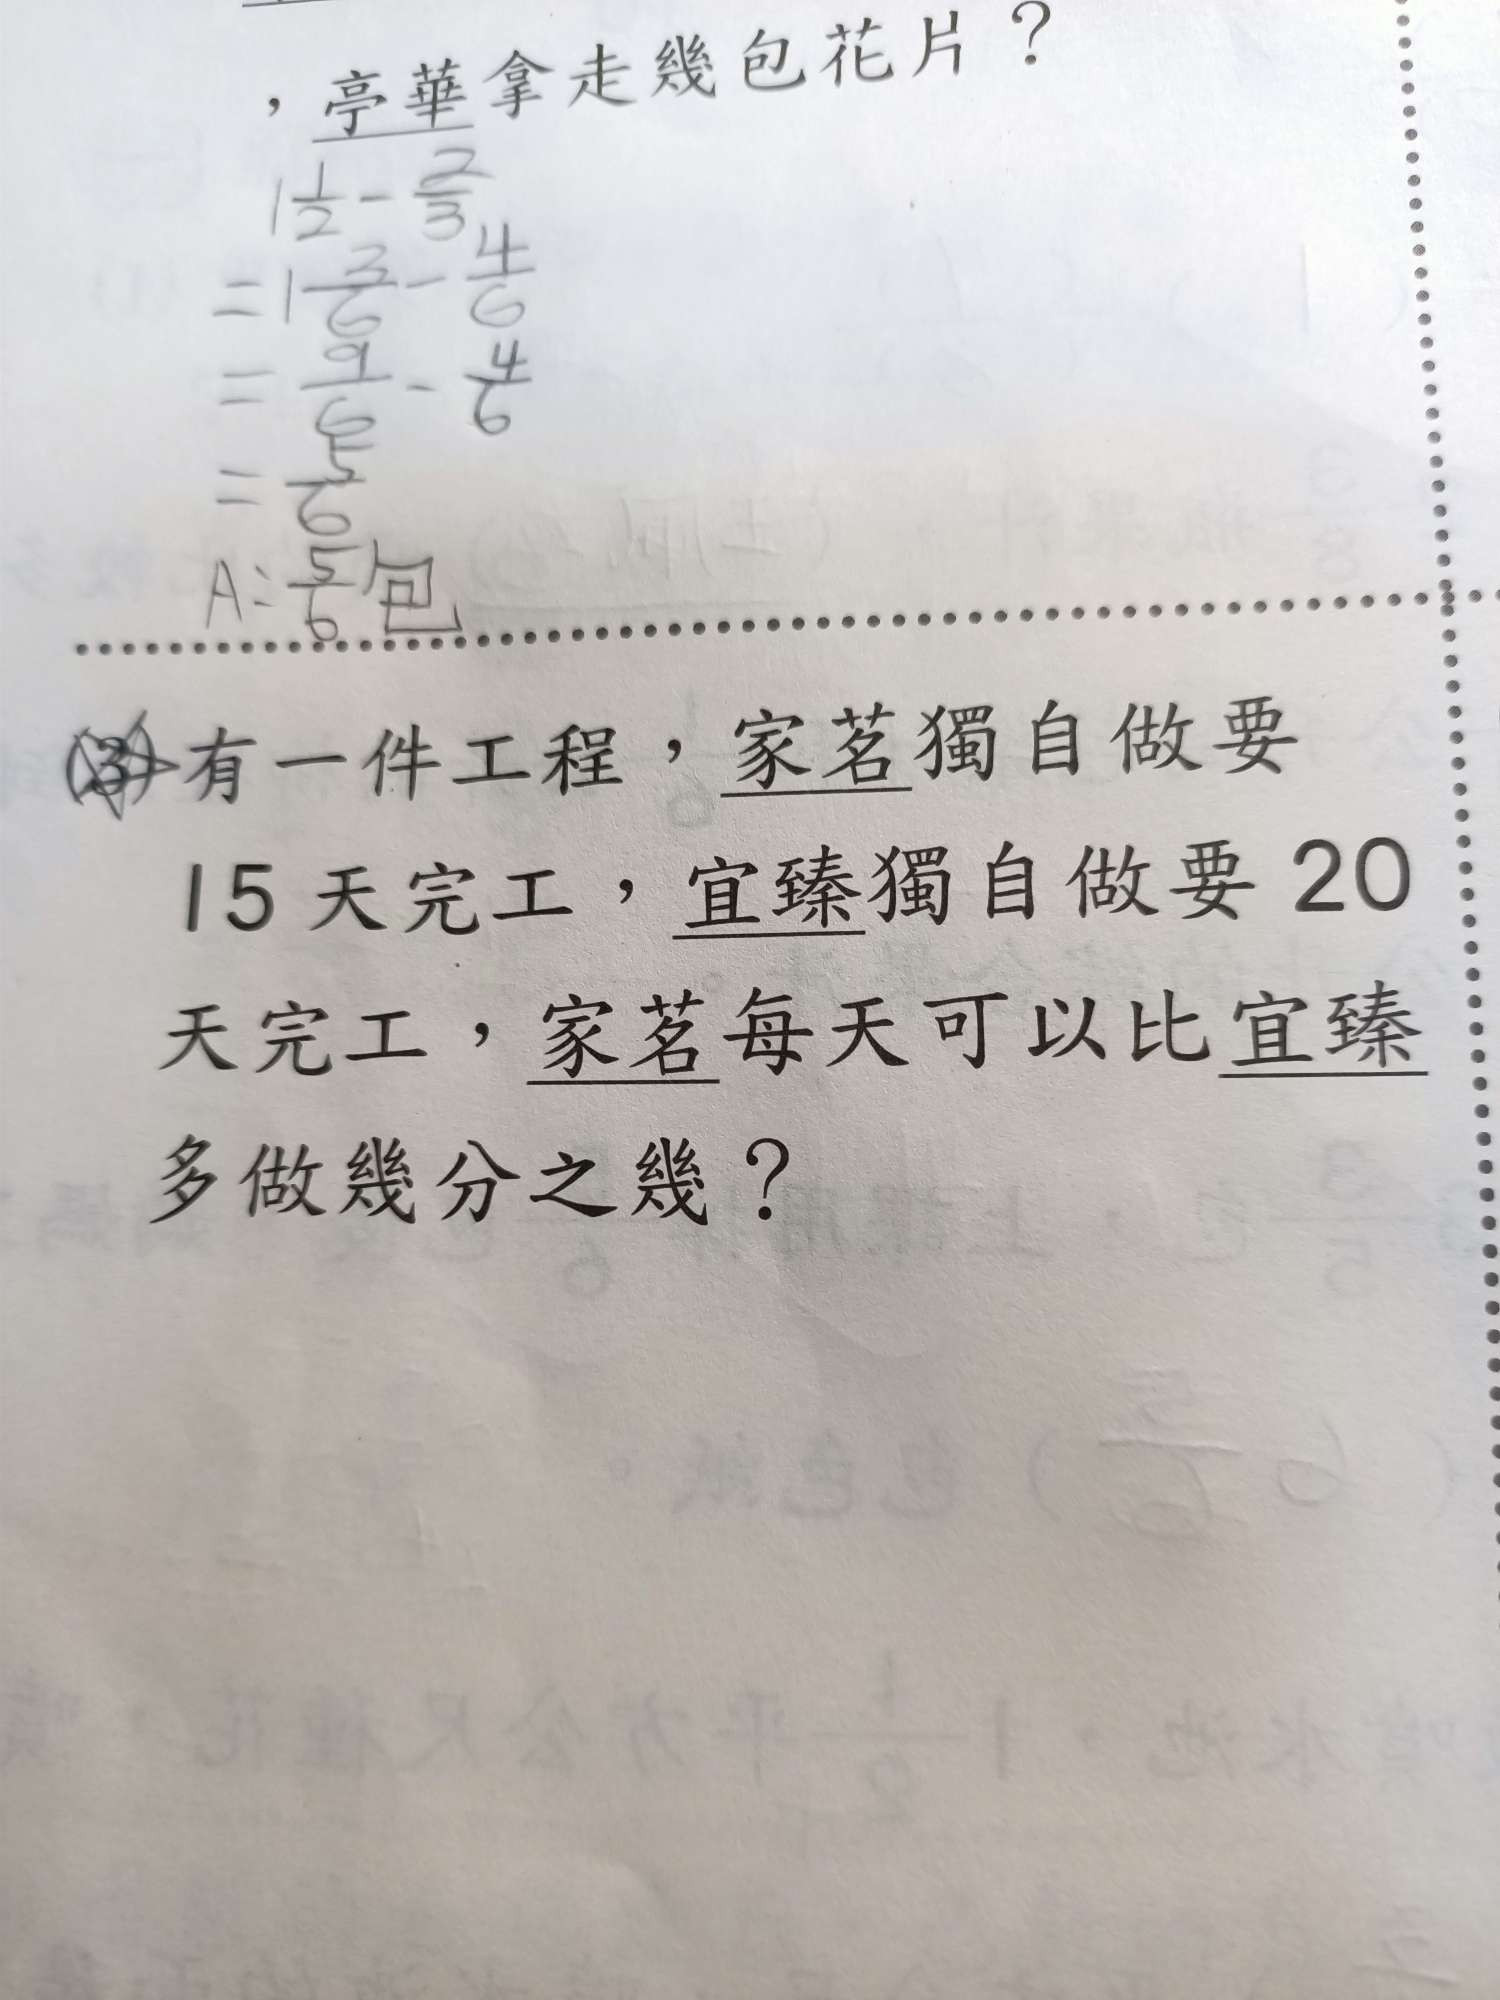 ，亭華拿走幾包花片？
1 1/2 - 2/3
= 1 3/6 - 4/6
= 9/6 - 4/6
= 5/6
A: 5/6 包
(3) 有一件工程，家茗獨自做要
15 天完工，宜臻獨自做要 20
天完工，家茗每天可以比宜臻
多做幾分之幾？